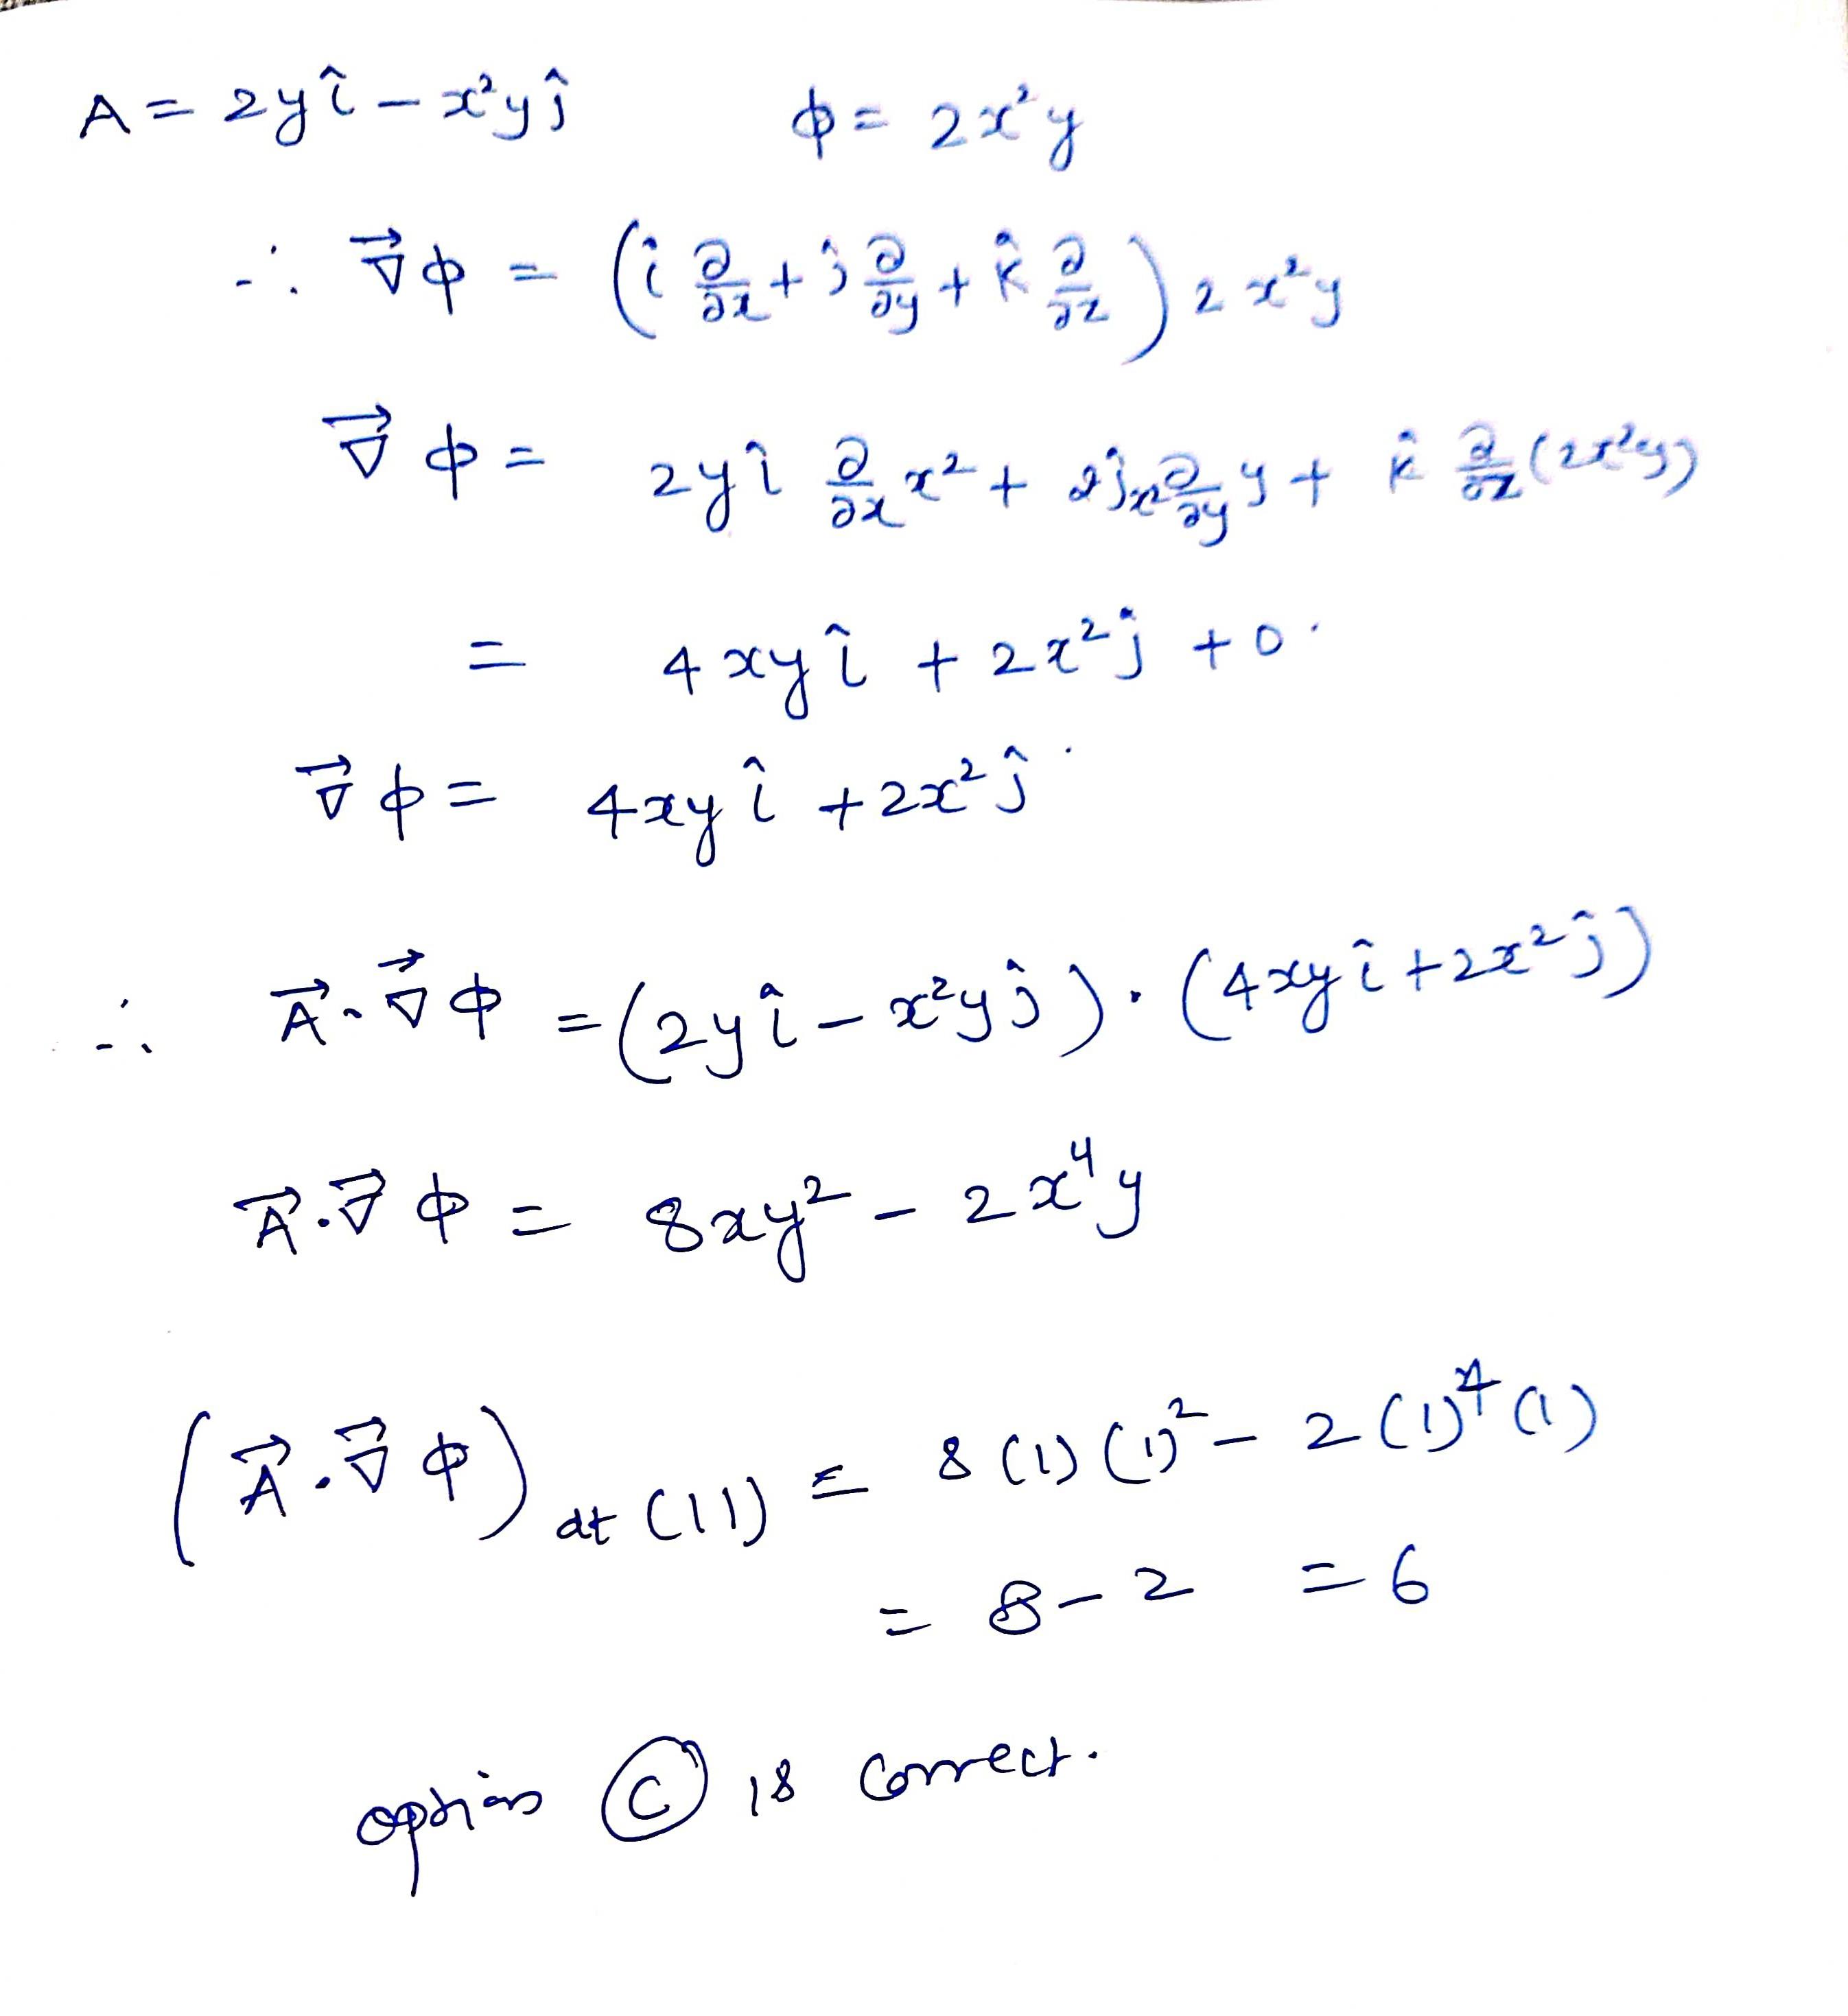 A = 2yî − x²yĵ    ϕ = 2x²y
∴ ∇⃗ϕ = (î ∂/∂x + ĵ ∂/∂y + k̂ ∂/∂z) 2x²y
∇⃗ϕ = 2yî ∂/∂x x² + 2ĵx² ∂/∂y y + k̂ ∂/∂z (2x²y)
= 4xyî + 2x²ĵ + 0.
∇⃗ϕ = 4xyî + 2x²ĵ
∴ A⃗·∇⃗ϕ = (2yî − x²yĵ)·(4xyî + 2x²ĵ)
A⃗·∇⃗ϕ = 8xy² − 2x⁴y
(A⃗·∇⃗ϕ) at (1 1) = 8(1)(1)² − 2(1)⁴(1)
= 8 − 2 = 6
option Ⓒ is correct.